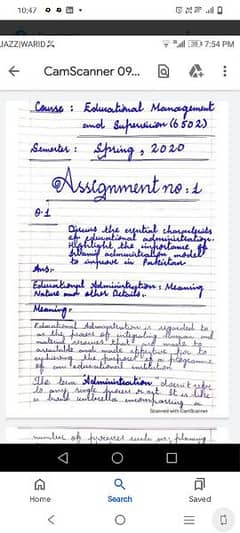 10:47
JAZZ|WARID
7:54 PM
CamScanner 09...
Course : Educational Management
and Supervision (6502)
Semester : Spring, 2020
Assignment no : 1
Q.1
Discuss the essential characteristics
of educational administration.
Highlight the importance of
Islamic administration model
to improve in Pakistan
Ans:-
Educational Administration : Meaning
Nature and other Details:-
Meaning:-
Educational Administration is regarded to
as the process of integrating human and
material resources that and made to
available and made effective for to
the purpose of a programme
of an educational institution
The term "Administration" doesn't refer
to any single process or act. It is like
a broad umbrella encompassing a
Scanned with CamScanner
number of processes such as: planning
Home
Search
Saved